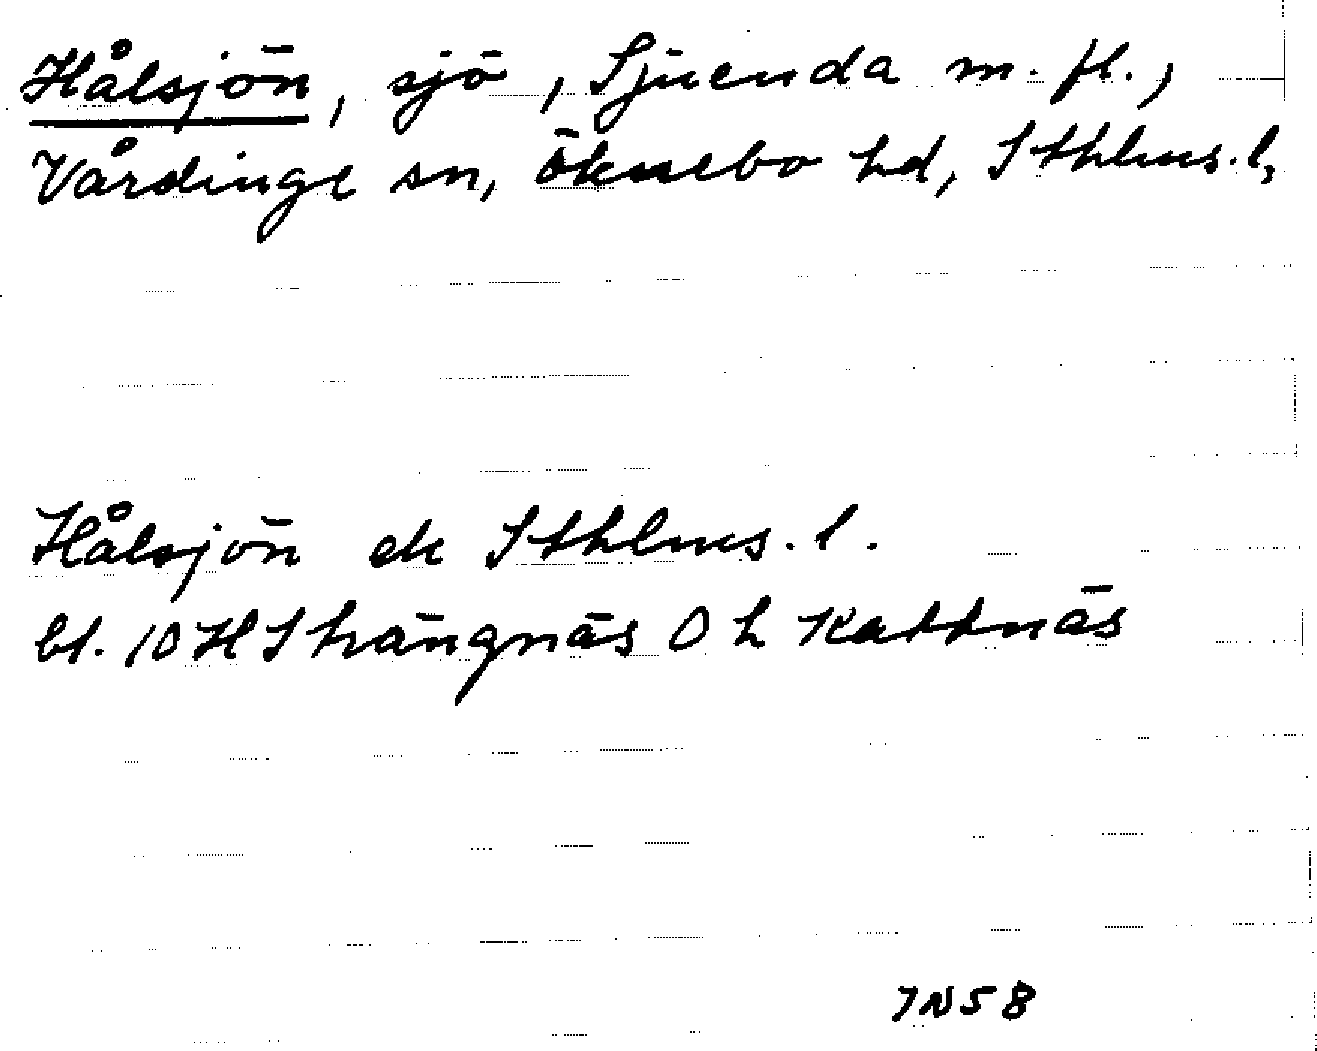 Hålsjön, sjö, Sjuenda m.fl.,
Vårdinge sn, Öknebo hd, Sthlms.l,
Hålsjön ek Sthlms.l.
bl. 10H Strängnäs 0 h Kattnäs
7N5 8